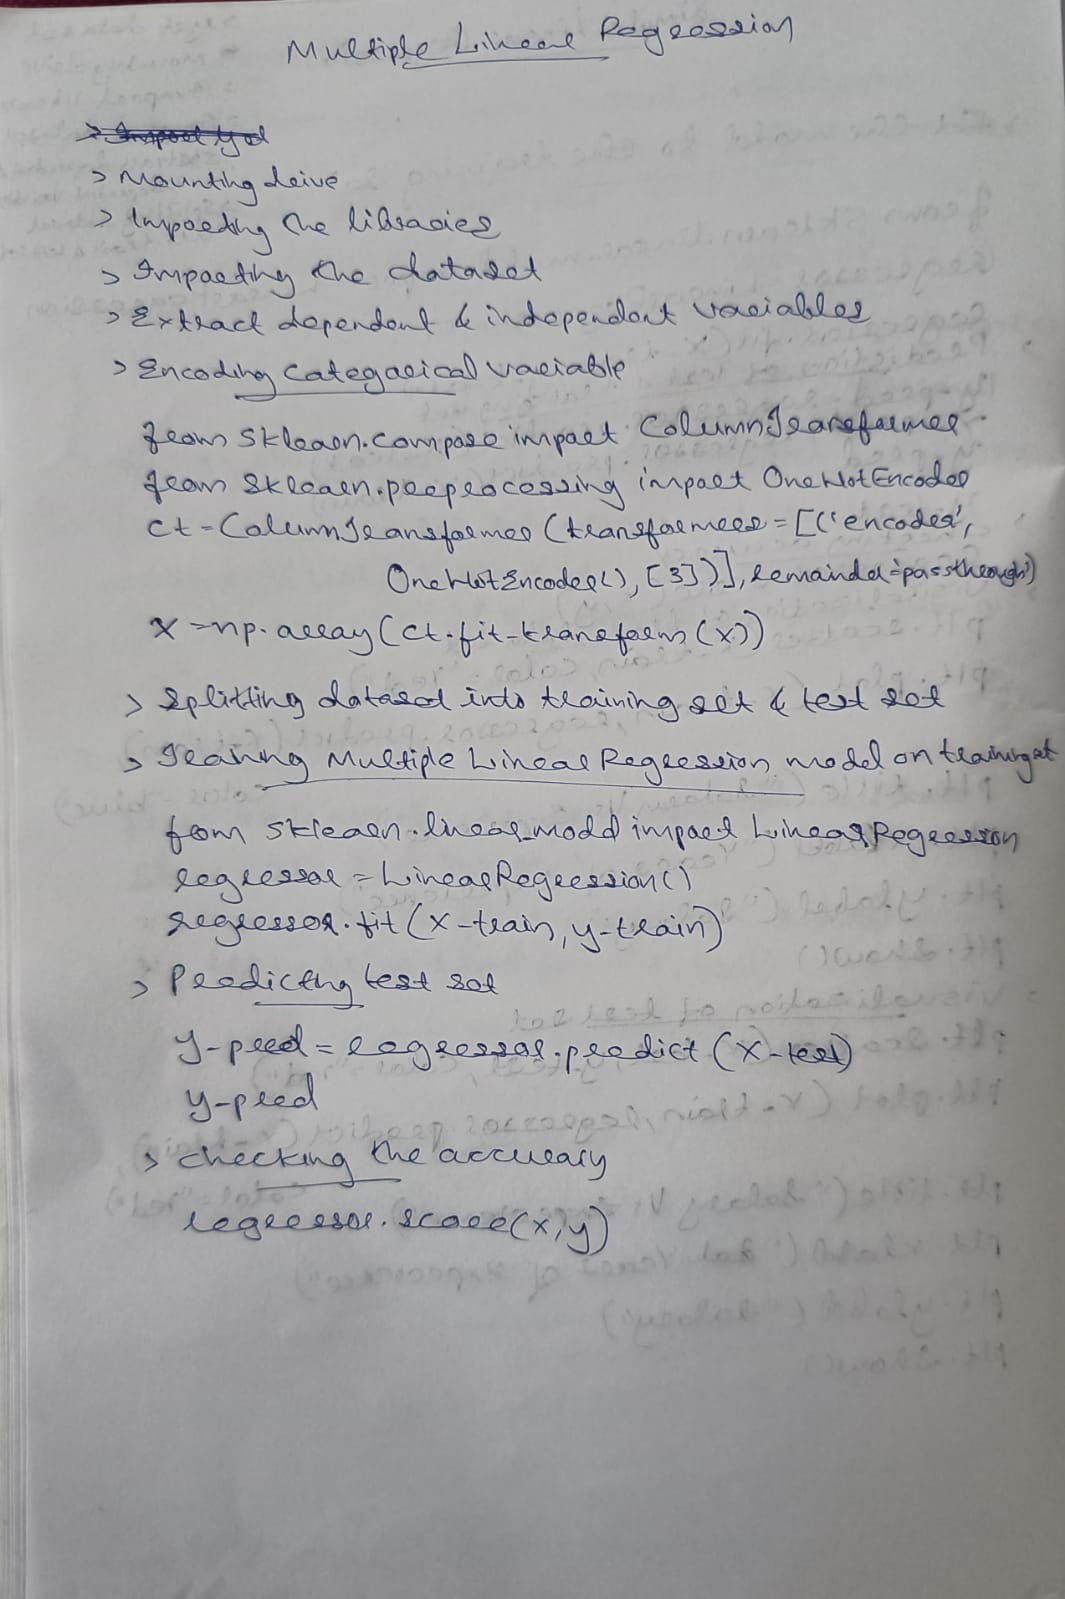 Multiple Linear Regression
> Mounting drive
> Importing the libraries
> Importing the dataset
> Extract dependent & independent variables
> Encoding categorical variable
from sklearn.compose import ColumnTransformer
from sklearn.preprocessing import OneHotEncoder
ct = ColumnTransformer (transformers = [('encoder',
OneHotEncoder(), [3])], remainder='passthrough')
X = np.array(ct.fit-transform(x))
> Splitting dataset into training set & test set
> Training Multiple Linear Regression model on training set
from sklearn.linear_model import LinearRegression
regressor = LinearRegression()
regressor.fit(X-train, y-train)
> Predicting test set
y-pred = regressor.predict(X-test)
y-pred
> Checking the accuracy
regressor.score(x,y)